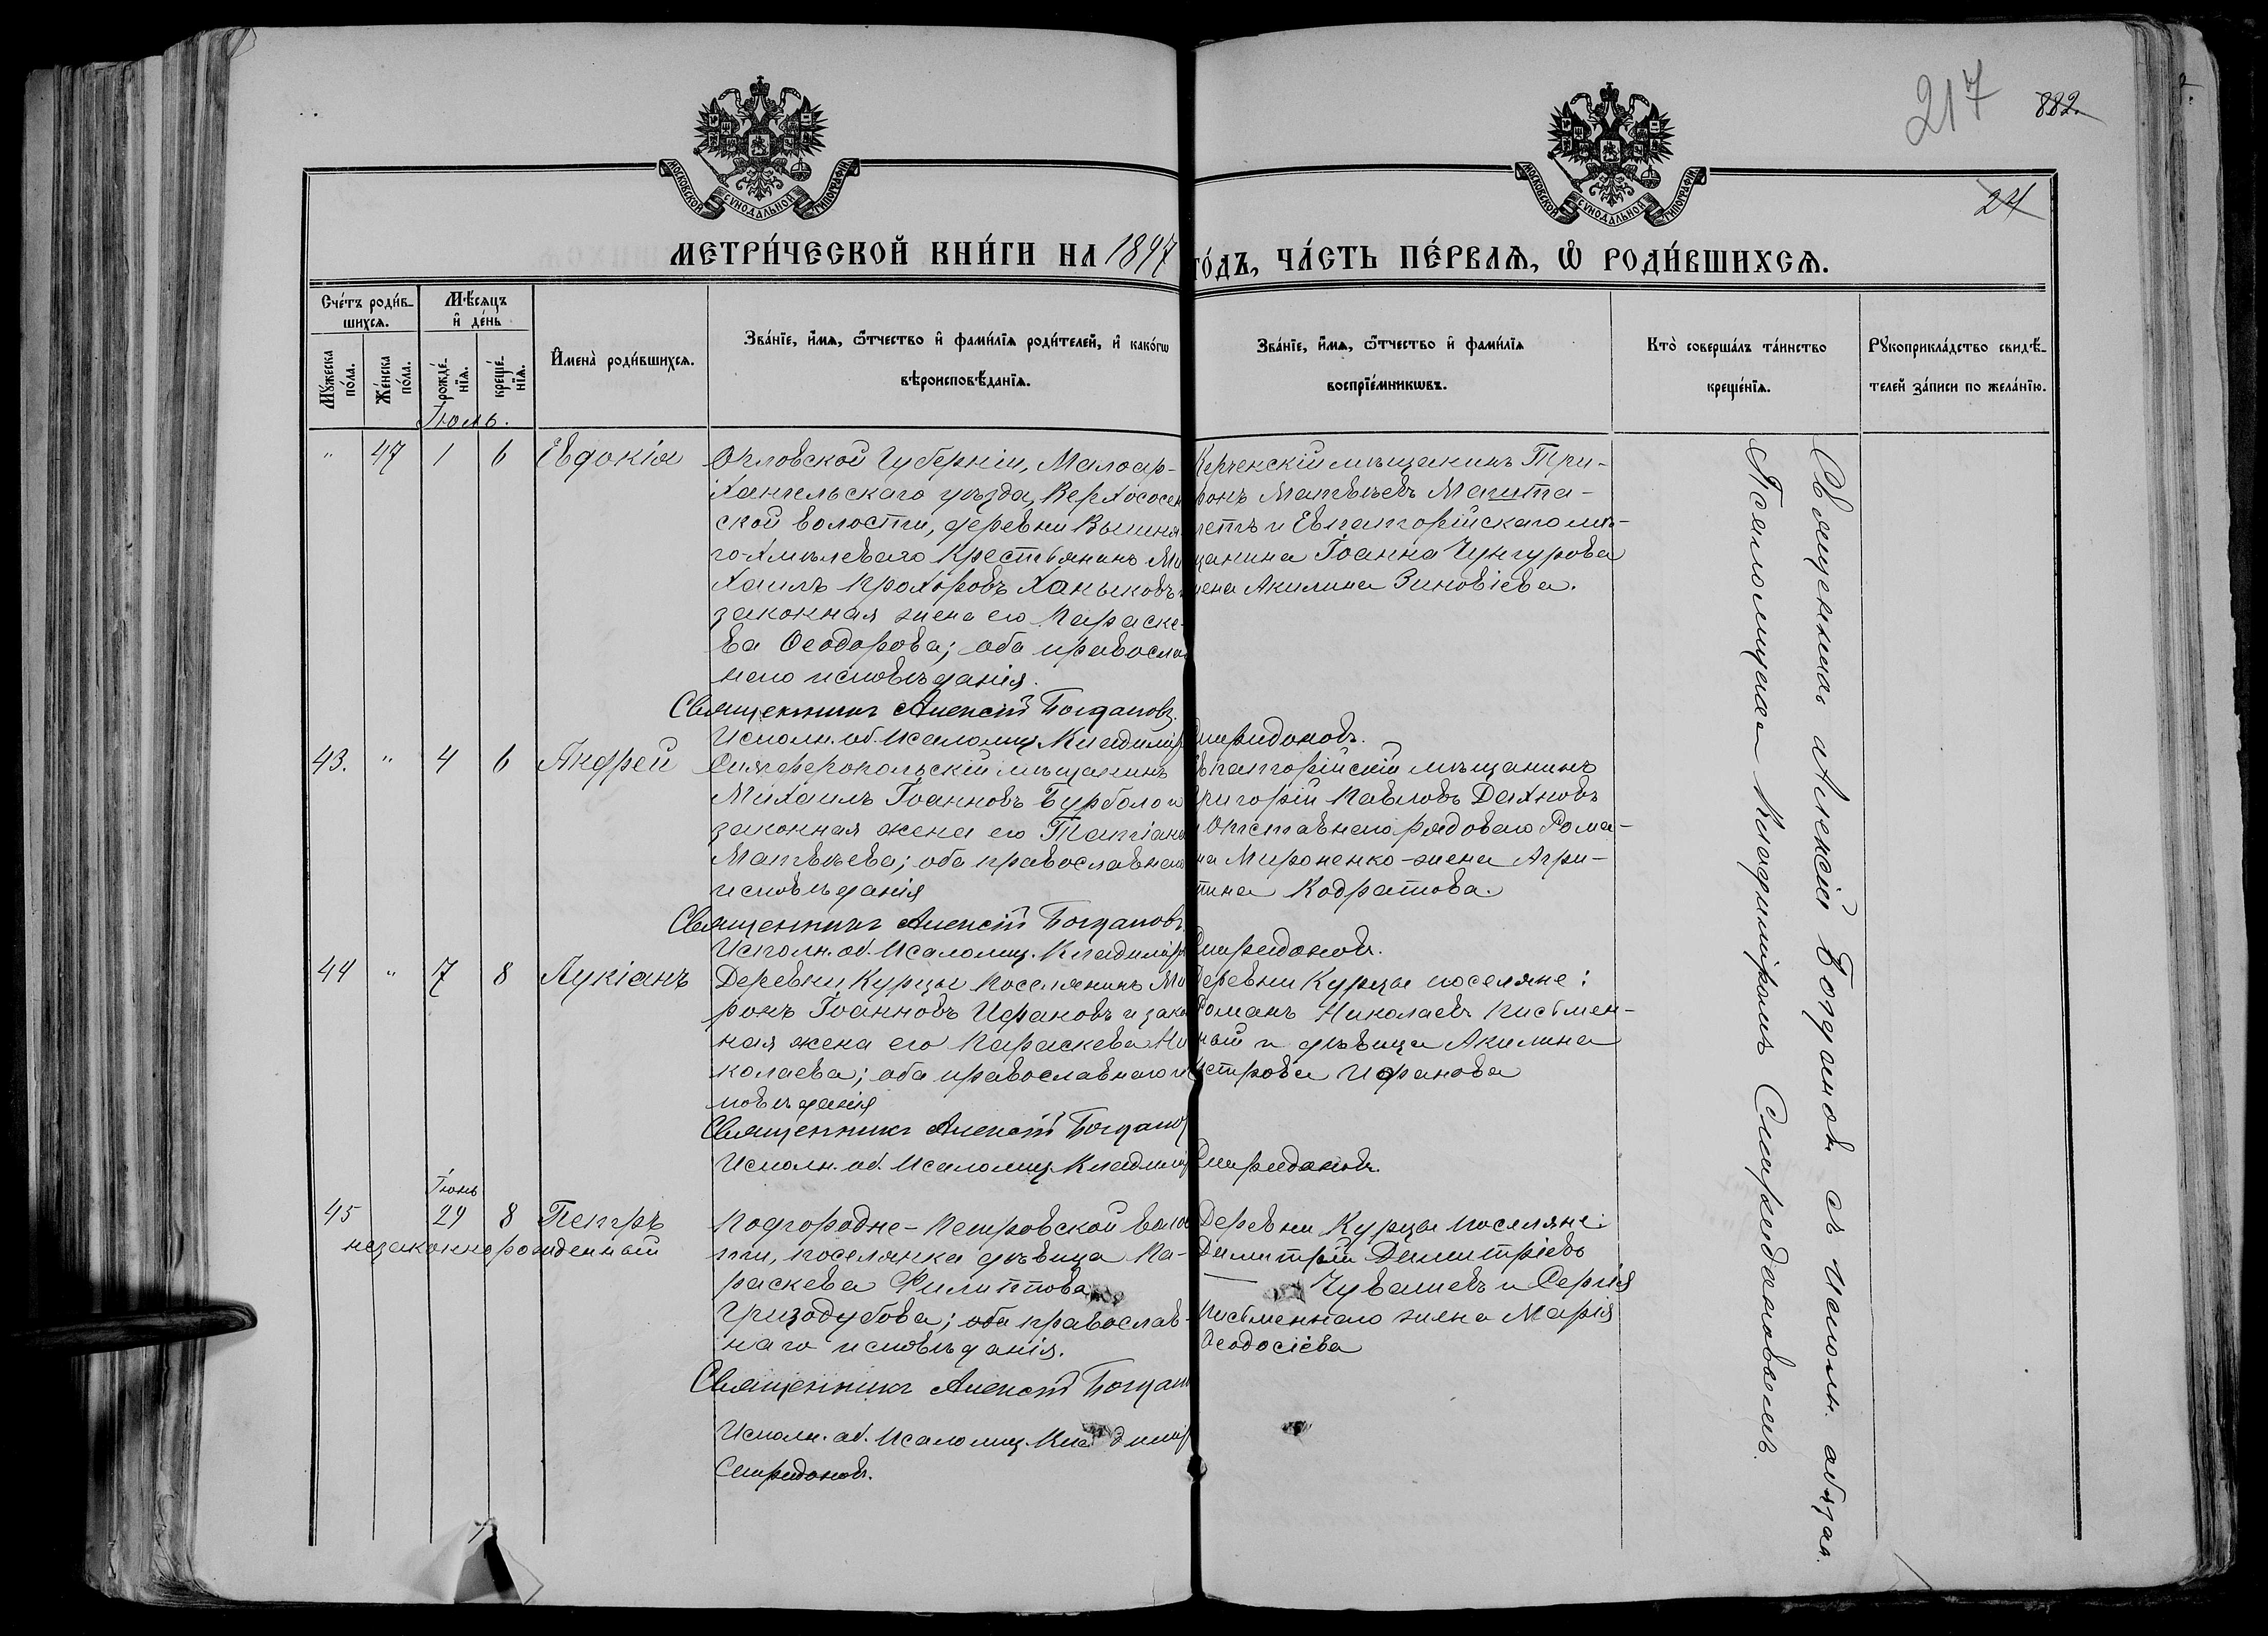 217
882.
24
МОСКОВСКОЙ СѴНОДАЛЬНОЙ ТИПОГРАФІИ
МОСКОВСКОЙ СѴНОДАЛЬНОЙ ТИПОГРАФІИ
МЕТРИ́ЧЕСКОЙ КНИ́ГИ НА 1897 ГО́ДЪ, ЧА́СТЬ ПЕ́РВАѦ, Ѡ҆ РОДИ́ВШИХСѦ.
Сче́тъ роди́в-
шихсѧ.
Мѣ́сѧцъ
и҆ де́нь
Мꙋ́жеска
по́ла.
Же́нска
по́ла.
рожде́-
нїѧ.
креще́-
нїѧ.
И҆мена̀ роди́вшихсѧ.
Зва́нїе, и҆́мѧ, ѻ҆́тчество и҆ фами́лїѧ роди́телей, и҆ како́гѡ
вѣроисповѣ́данїѧ.
Зва́нїе, и҆́мѧ, ѻ҆́тчество и҆ фами́лїѧ
воспрїе́мникѡвъ.
Кто̀ соверша́лъ та́инство
креще́нїѧ.
Рꙋкоприкла́дство свидѣ́-
телей за́писи по жела́нїю.
Іюль.
" 47 1 6 Евдокія
Орловской Губерніи, Малоар-
хангельскаго уѣзда, Верхососен
ской волости, деревни Вышня
го-Хмѣлеваго Крестьянинъ Ми
хаилъ Прохоровъ Ханыковъ и
законная жена его Параске-
ва Ѳеодорова; оба правосла
наго исповѣданія.
Священникъ Алексій Богдановъ.
Исполн. об. Псаломщ. Владимір Спиридоновъ.
Керченскій мѣщанинъ Три-
фонъ Матвѣевъ
и Евпаторійскаго мѣ-
щанина Іоанна Чунгурова
жена Акилина Зиновіева.
43. " 4 6 Андрей
Симферопольскій мѣщанинъ
Михаилъ Іоанновъ Бурболо и
законная жена его Татіана
Матвѣева; оба православнаго
исповѣданія
Священникъ Алексій Богдановъ
Исполн. об. Псаломщ. Владимір Спиридоновъ.
Евпаторійскій мѣщанинъ
Григорій Павловъ Дахновъ
и Отставнаго рядоваго Рома-
на Мироненко-жена Агри-
пина Кодратова.
44 " 7 8 Лукіанъ
Деревни Курцы поселянинъ Ми
ронъ Іоанновъ Ифановъ и зако
ная жена его Параскева Ни
колаева; оба православнаго и
повѣданія
Священникъ Алексій Богданов
Исполн. об. Псаломщ. Владимір Спиридоновъ.
Деревни Курцы поселяне:
Романъ Николаевъ Письмен-
ный и дѣвица Акилина
Петрова Ифанова
Іюнь
45 29 8 Петръ
незаконнорожденный
Подгородне-Петровской воло
сти, поселянка дѣвица Па-
раскева Филиппова
Гризодубова; оба православ-
наго исповѣданія.
Священникъ Алексій Богданов
Исполн. об. Псаломщ. Владимір
Спиридоновъ.
Деревни Курцы поселяне:
Димитрій Димитріевъ
Чувашевъ и Сергія
Письменнаго жена Марія
Ѳеодосіева
Священникъ Алексій Богдановъ съ исполн. обязан.
Псаломщика Владиміромъ Спиридоновымъ.